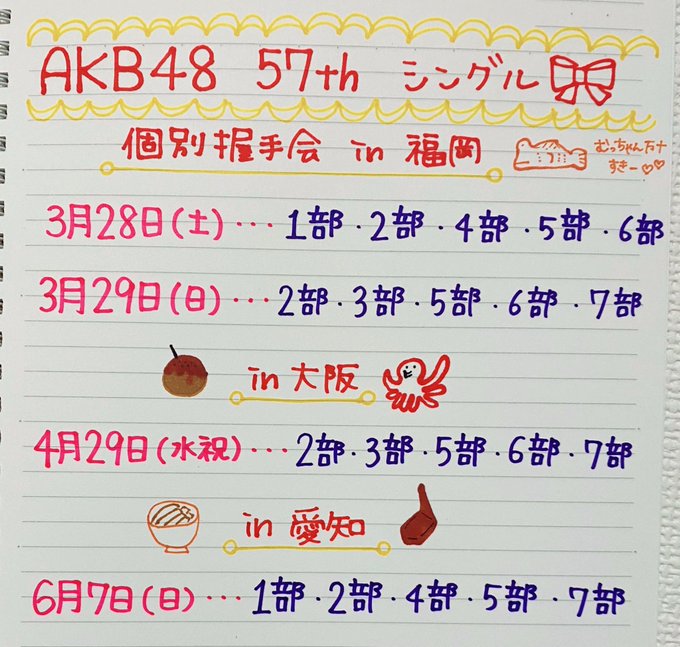 AKB48 57th シングル
個別握手会 in 福岡
むっちゃん万十
すきー♡♡
3月28日(土)・・・1部・2部・4部・5部・6部
3月29日(日)・・・2部・3部・5部・6部・7部
in 大阪
4月29日(水祝)・・・2部・3部・5部・6部・7部
in 愛知
6月7日(日)・・・1部・2部・4部・5部・7部